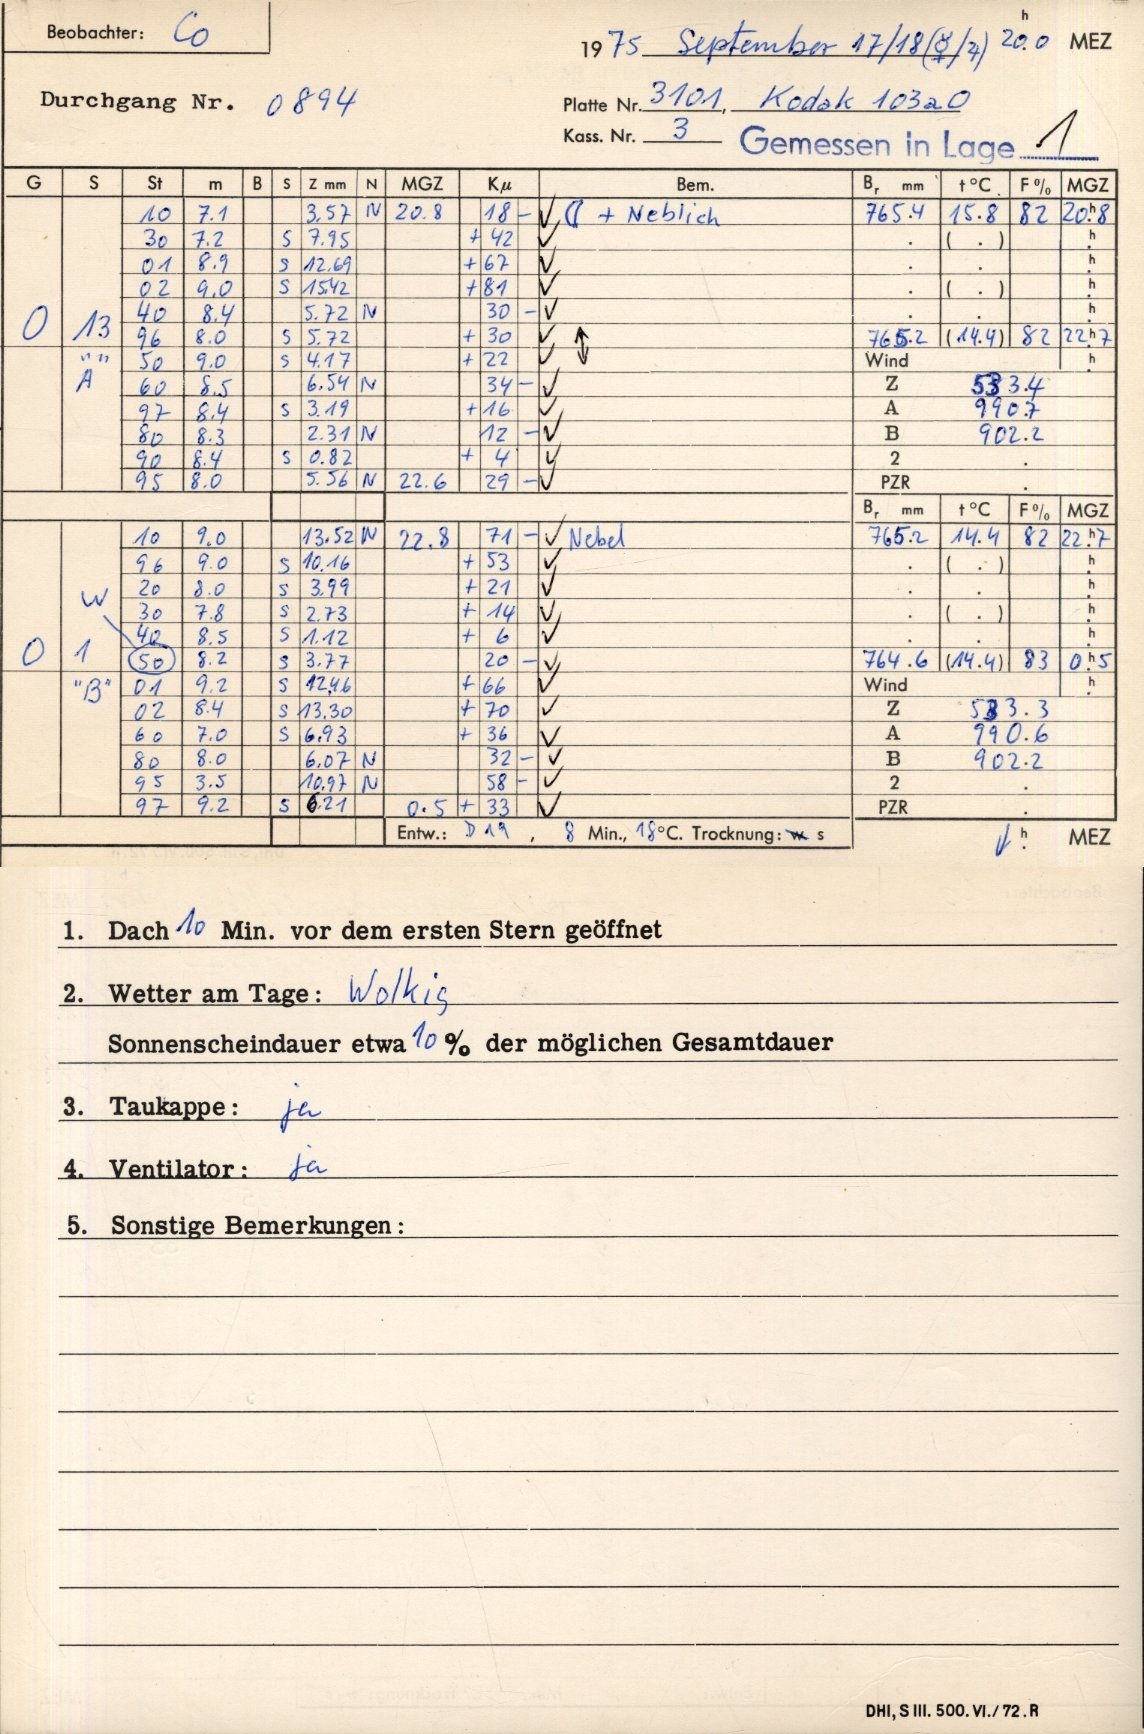 Beobachter: Co
1975 September 17/18 (☿/♃) 20ʰ.0 MEZ
Durchgang Nr. 0894
Platte Nr. 3101, Kodak 103aO
Kass. Nr. 3 Gemessen in Lage 1
G S St m B S Z mm N MGZ Kμ Bem. Bᵣ mm t °C F % MGZ
10 7.1 3.57 N 20.8 18 - ✓ ☾ + Neblich 765.4 15.8 82 20ʰ.8
30 7.2 S 7.95 + 42 ✓ . ( . ) ʰ.
01 8.9 S 12.69 + 67 ✓ . . ʰ.
02 9.0 S 15.42 + 81 ✓ . ( . ) ʰ.
40 8.4 5.72 N 30 - ✓ . . ʰ.
0 13 96 8.0 S 5.72 + 30 ✓ ↕ 765.2 (14.4) 82 22ʰ.7
"" 50 9.0 S 4.17 + 22 ✓ Wind ʰ.
A 60 8.5 6.54 N 34 - ✓ Z 533.4
97 8.4 S 3.19 + 16 ✓ A 990.7
80 8.3 2.31 N 12 - ✓ B 902.2
90 8.4 S 0.82 + 4 ✓ 2 .
95 8.0 5.56 N 22.6 29 - ✓ PZR .
Bᵣ mm t °C F % MGZ
10 9.0 13.52 N 22.8 71 - ✓ Nebel 765.2 14.4 82 22ʰ.7
96 9.0 S 10.16 + 53 ✓ . ( . ) ʰ.
20 8.0 S 3.99 + 21 ✓ . . ʰ.
W 30 7.8 S 2.73 + 14 ✓ . ( . ) ʰ.
40 8.5 S 1.12 + 6 ✓ . . ʰ.
0 1 50 8.2 S 3.77 20 - ✓ 764.6 (14.4) 83 0ʰ.5
"B" 01 9.2 S 12.46 + 66 ✓ Wind ʰ.
02 8.4 S 13.30 + 70 ✓ Z 533.3
60 7.0 S 6.93 + 36 ✓ A 990.6
80 8.0 6.07 N 32 - ✓ B 902.2
95 3.5 10.97 N 58 - ✓ 2 .
97 9.2 S 6.21 0.5 + 33 ✓ PZR .
Entw.: D19 , 8 Min., 18°C. Trocknung: w s ʰ. MEZ
1. Dach 10 Min. vor dem ersten Stern geöffnet
2. Wetter am Tage: Wolkig
Sonnenscheindauer etwa 10 % der möglichen Gesamtdauer
3. Taukappe: ja
4. Ventilator: ja
5. Sonstige Bemerkungen:
DHI, S III. 500. VI./72. R